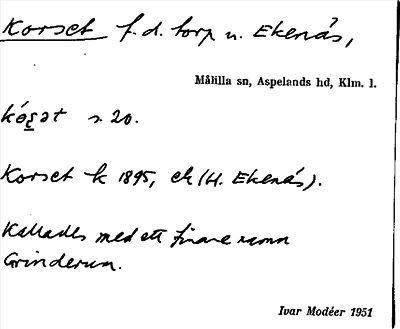 Korset f. d. torp u. Ekenäs,
Målilla sn, Aspelands hd, Klm. l.
s. 20.
Korset k 1895, ek (H. Ekenäs).
Kallades med ett finare namn
Grinderum.
Ivar Modéer 1951